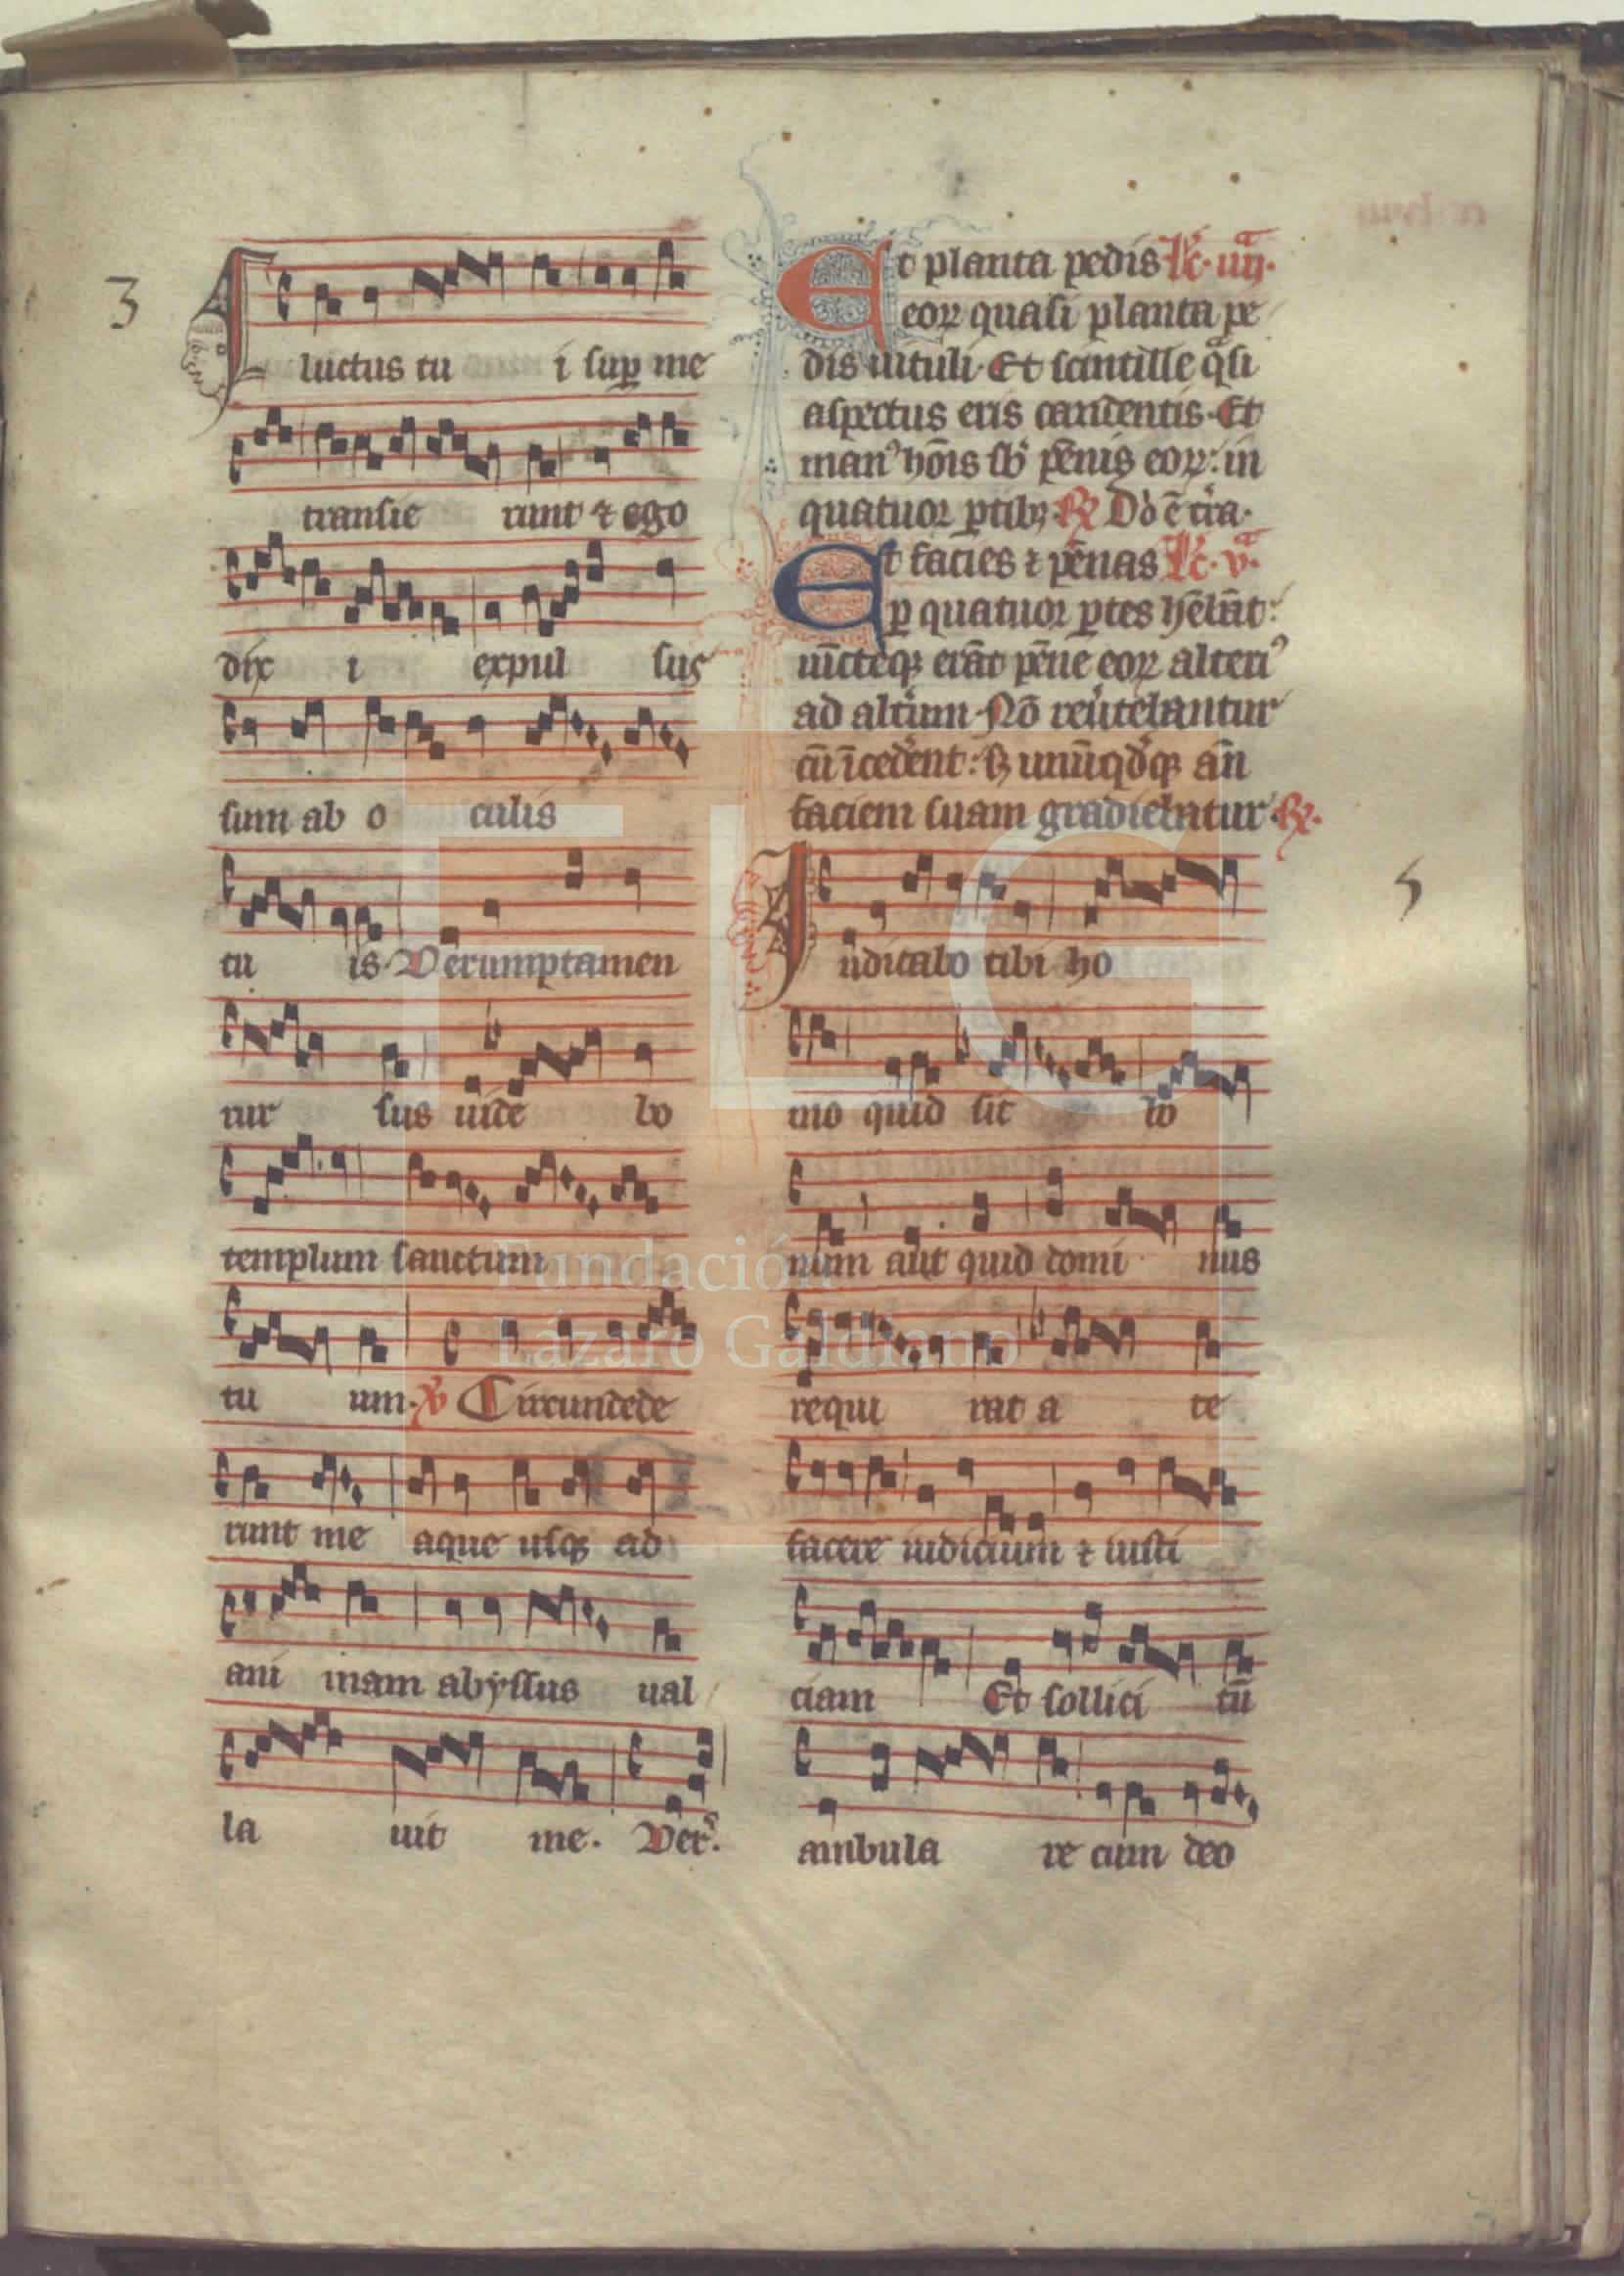 3
Fluctus tu i sup me
transie runt ⁊ ego
dix i expul sus
sum ab o culis
tu is. Verumptamen
rur sus uide bo
templum sanctum
tu um. ℣ Circundede
runt me aque usqꝫ ad
ani mam abyssus ual
la uit me. Ver̉.
Et planta pedis Lc̄. iiij.ᵃ
eoꝝ quasi planta pe
dis uituli. Et scintille q̄si
aspectus eris candentis. Et
manꝰ hoīs sb̓ pēnis eoꝝ: in
quatuor ꝑtibꝫ ℟
Et facies ⁊ pēnas Lc̄. v.ᵃ
ꝑ quatuor ꝑtes hēbāt:
iūcteqꝫ erāt pēne eoꝝ alteriꝰ
ad alt̓um. Nō reūtebantur
cū īcedēnt: sꝫ unūqd̓qꝫ an̄
faciem suam gradiebatur. ℟.
Iudicabo tibi ho
5
mo quid sit bo
num aut quid domi nus
requi rat a te
facere iudicium ⁊ iusti
ciam Et sollici tū
ambula re cum deo
Fundación
Lázaro Galdiano
FLG